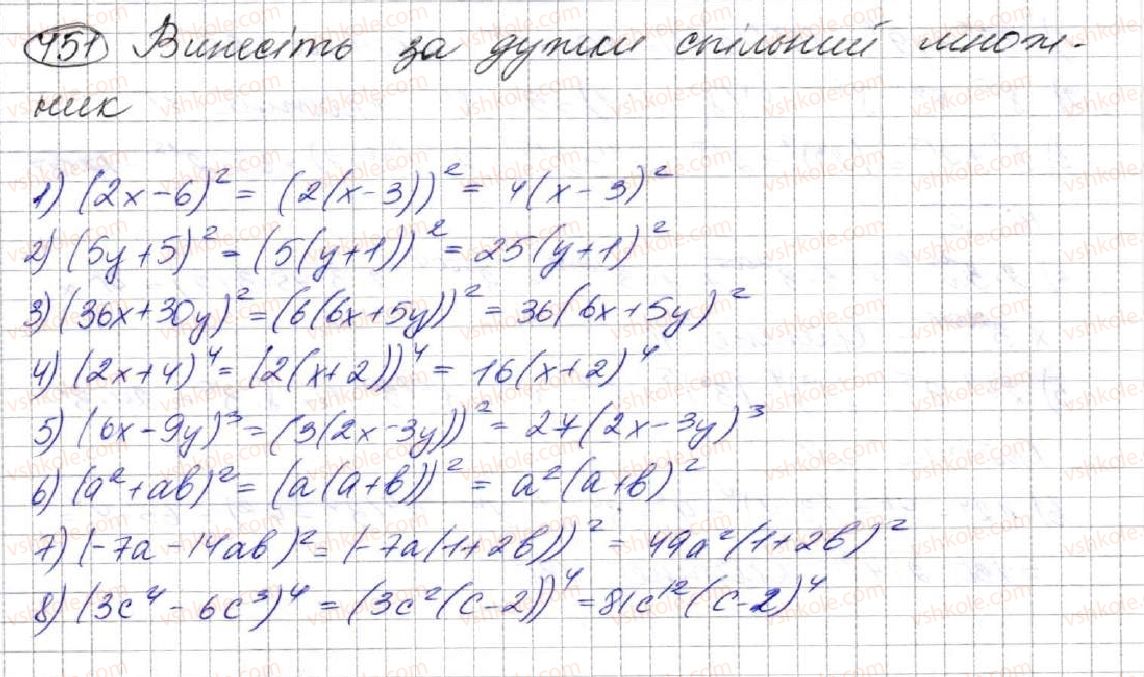 451 Винесіть за дужки спільний множ-
ник
1) (2x-6)² = (2(x-3))² = 4(x-3)²
2) (5y+5)² = (5(y+1))² = 25(y+1)²
3) (36x+30y)² = (6(6x+5y))² = 36(6x+5y)²
4) (2x+4)⁴ = (2(x+2))⁴ = 16(x+2)⁴
5) (6x-9y)³ = (3(2x-3y))² = 27(2x-3y)³
6) (a²+ab)² = (a(a+b))² = a²(a+b)²
7) (-7a-14ab)² = (-7a(1+2b))² = 49a²(1+2b)²
8) (3c⁴-6c³)⁴ = (3c²(c-2))⁴ = 81c¹²(c-2)⁴